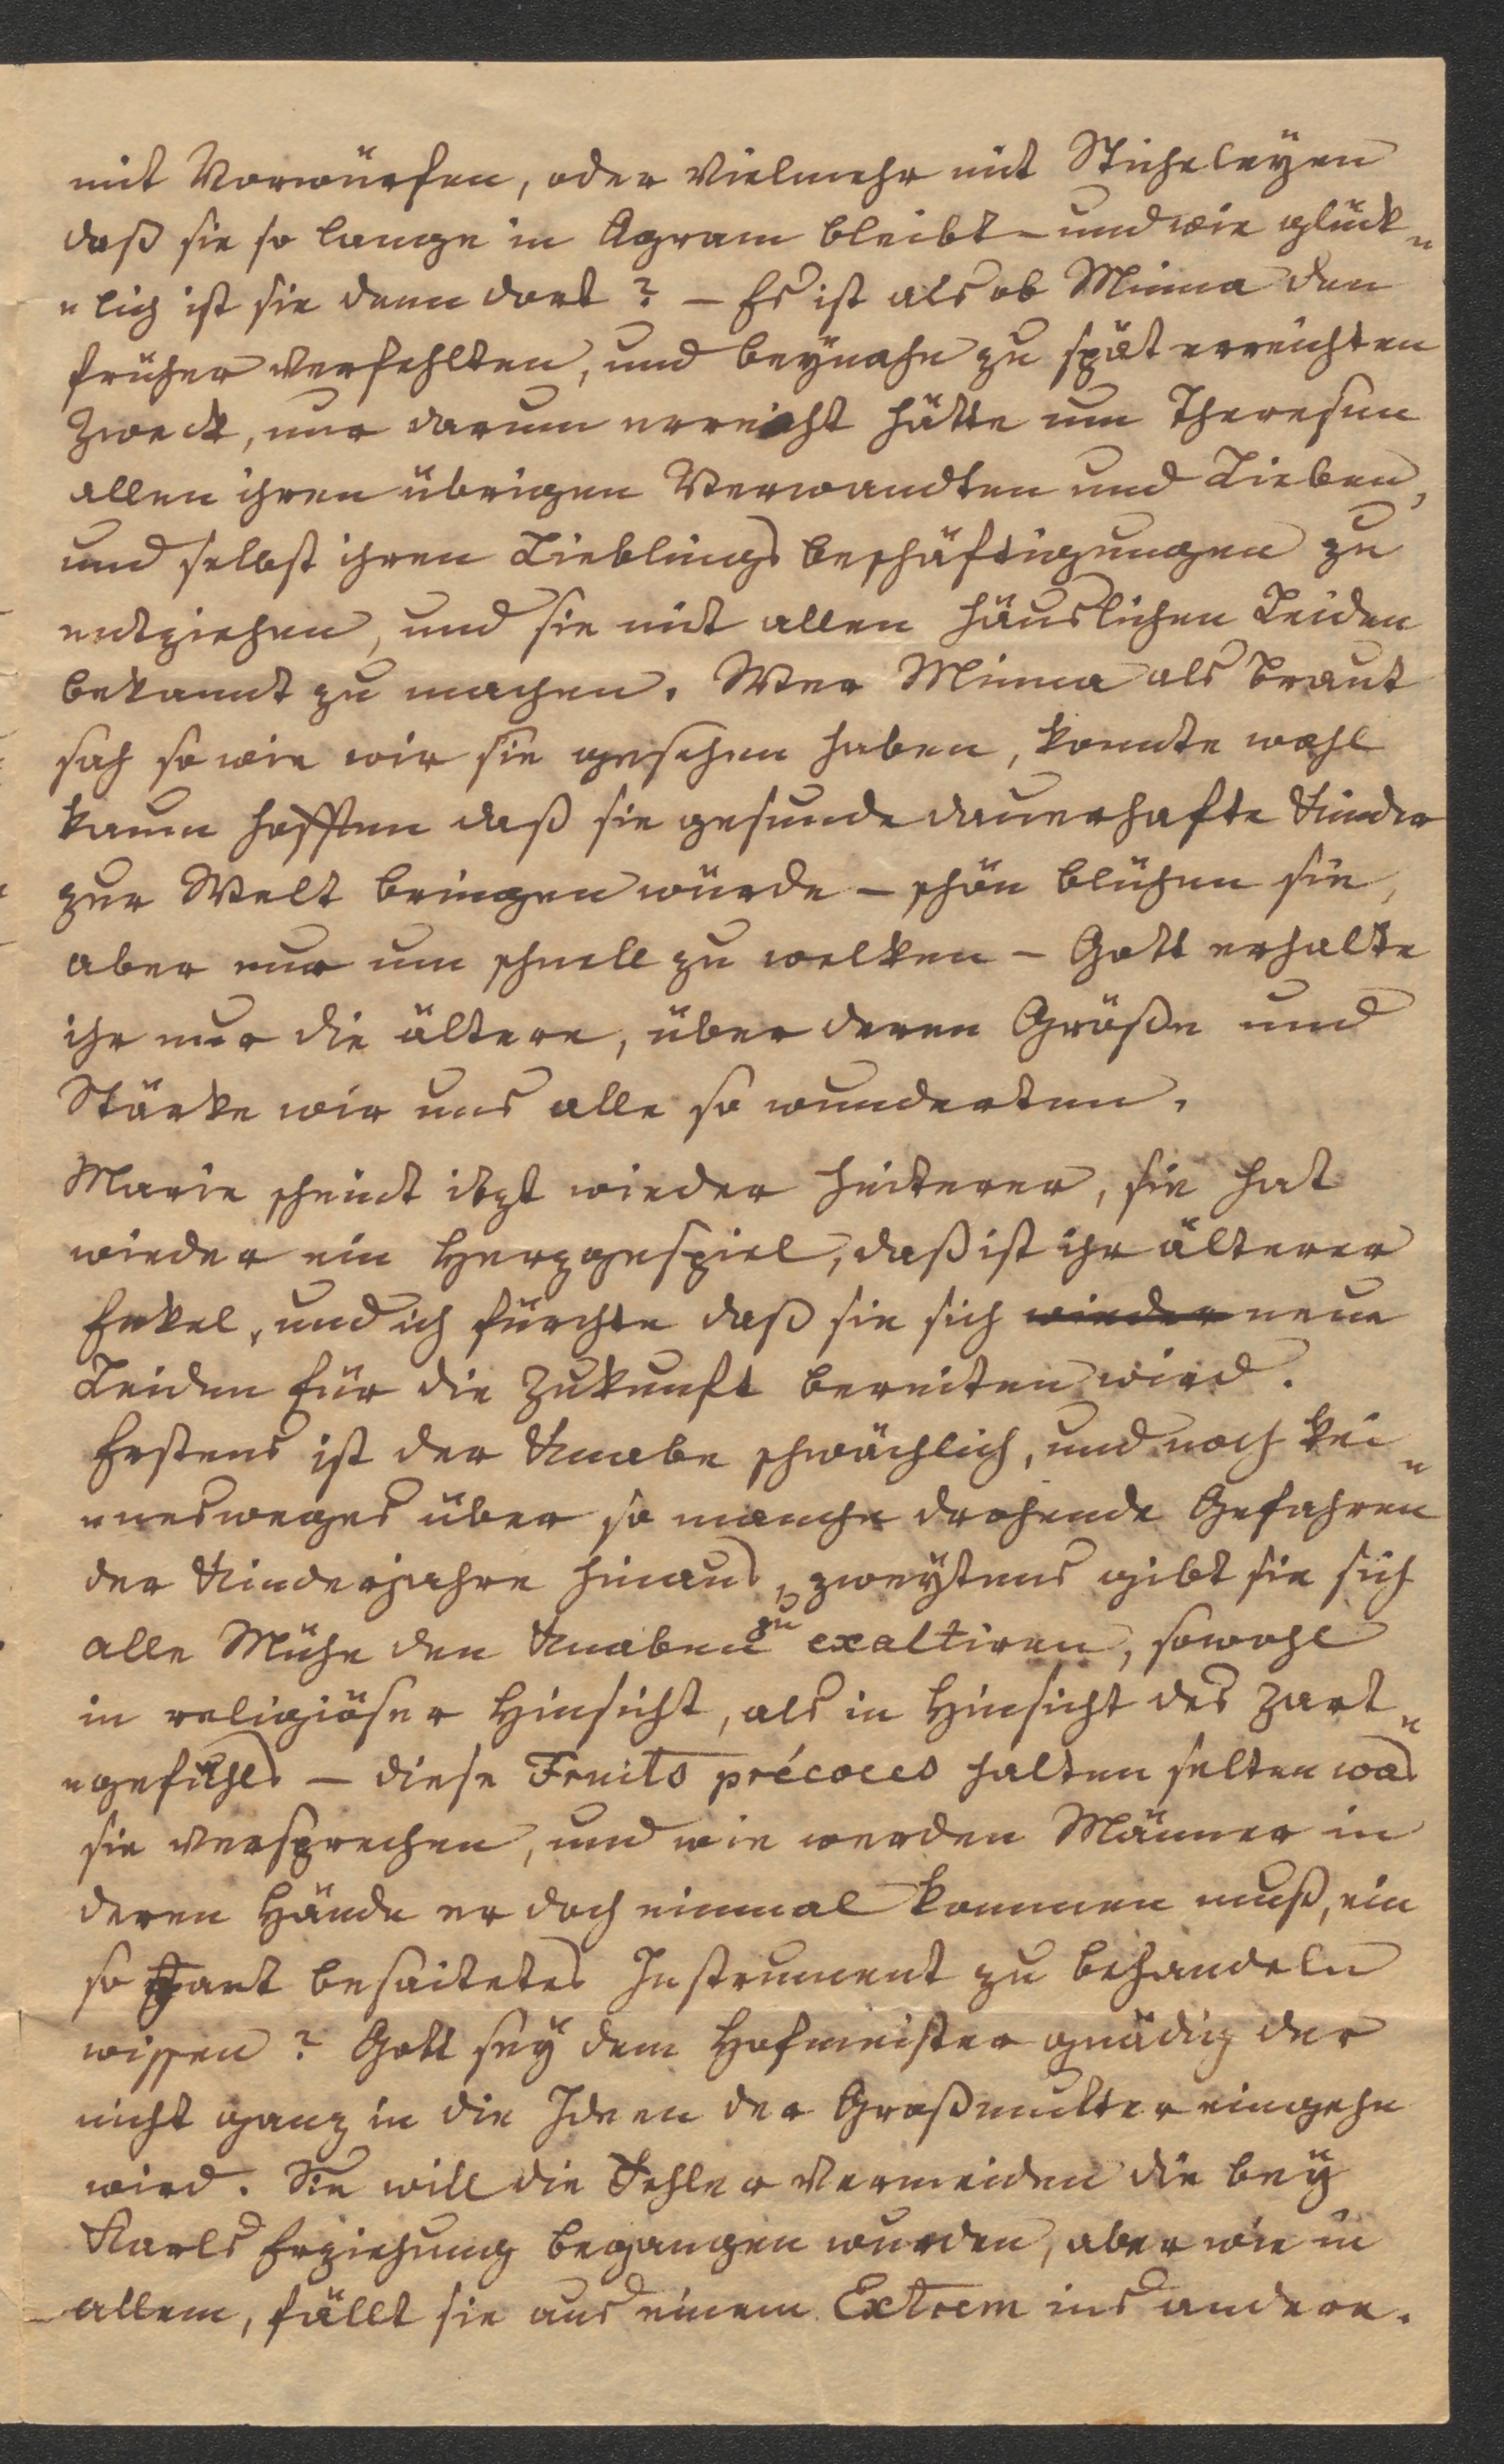 mit Vorwürfen, oder Vielmehr mit Sticheleyen
daß sie so lange in Agram bleibt – und wie glück„
„lich ist sie denn dort? – Es ist als ob Minna den
früher verfehlten, und beynahe zu spät erreichten
Zweck, nur darum erreicht hätte um Theresen
allen ihren übrigen Verwandten und Lieben,
und selbst ihren Lieblings beschäftigungen zu
entziehen, und sie mit allen häuslichen Leiden
bekannt zu machen. Wer Minna als Braut
sah so wie wir sie gesehen haben, konnte wohl
kaum hoffen daß sie gesunde dauerhafte Kinder
zur Welt bringen würde – schön blühen sie,
aber nur um schnell zu welken – Gott erhalte
ihr nur die ältere, über deren Größe und
Stärke wir uns alle so wunderten.
Marie scheint itzt wieder heiterer, sie hat
wieder ein Herzgespiel, daß ist ihr älterer
Enkel, und ich fürchte daß sie sich wieder neue
Leiden für die Zukunft bereiten wird.
Erstens ist der Knabe schwächlich, und noch kei„
„nesweges über so manche drohende Gefahren
der Kinderjahre hinaus, zweytens gibt sie sich
alle Mühe den Knaben zu exaltiren, sowohl
in religiöser Hinsicht, als in Hinsicht des Zart„
„gefühls – diese Fruits précoces halten selten was
sie versprechen, und wie werden Männer in
deren Hände er doch einmal kommen muß, ein
so zart besaitetes Instrument zu behandeln
wissen? Gott sey dem Hofmeister gnädig der
nicht ganz in die Ideen der Großmutter eingehn
wird. Sie will die Fehler vermeiden die bey
Karls Erziehung begangen wurden, aber wie in
allem, fällt sie aus einem Extrem ins andere.